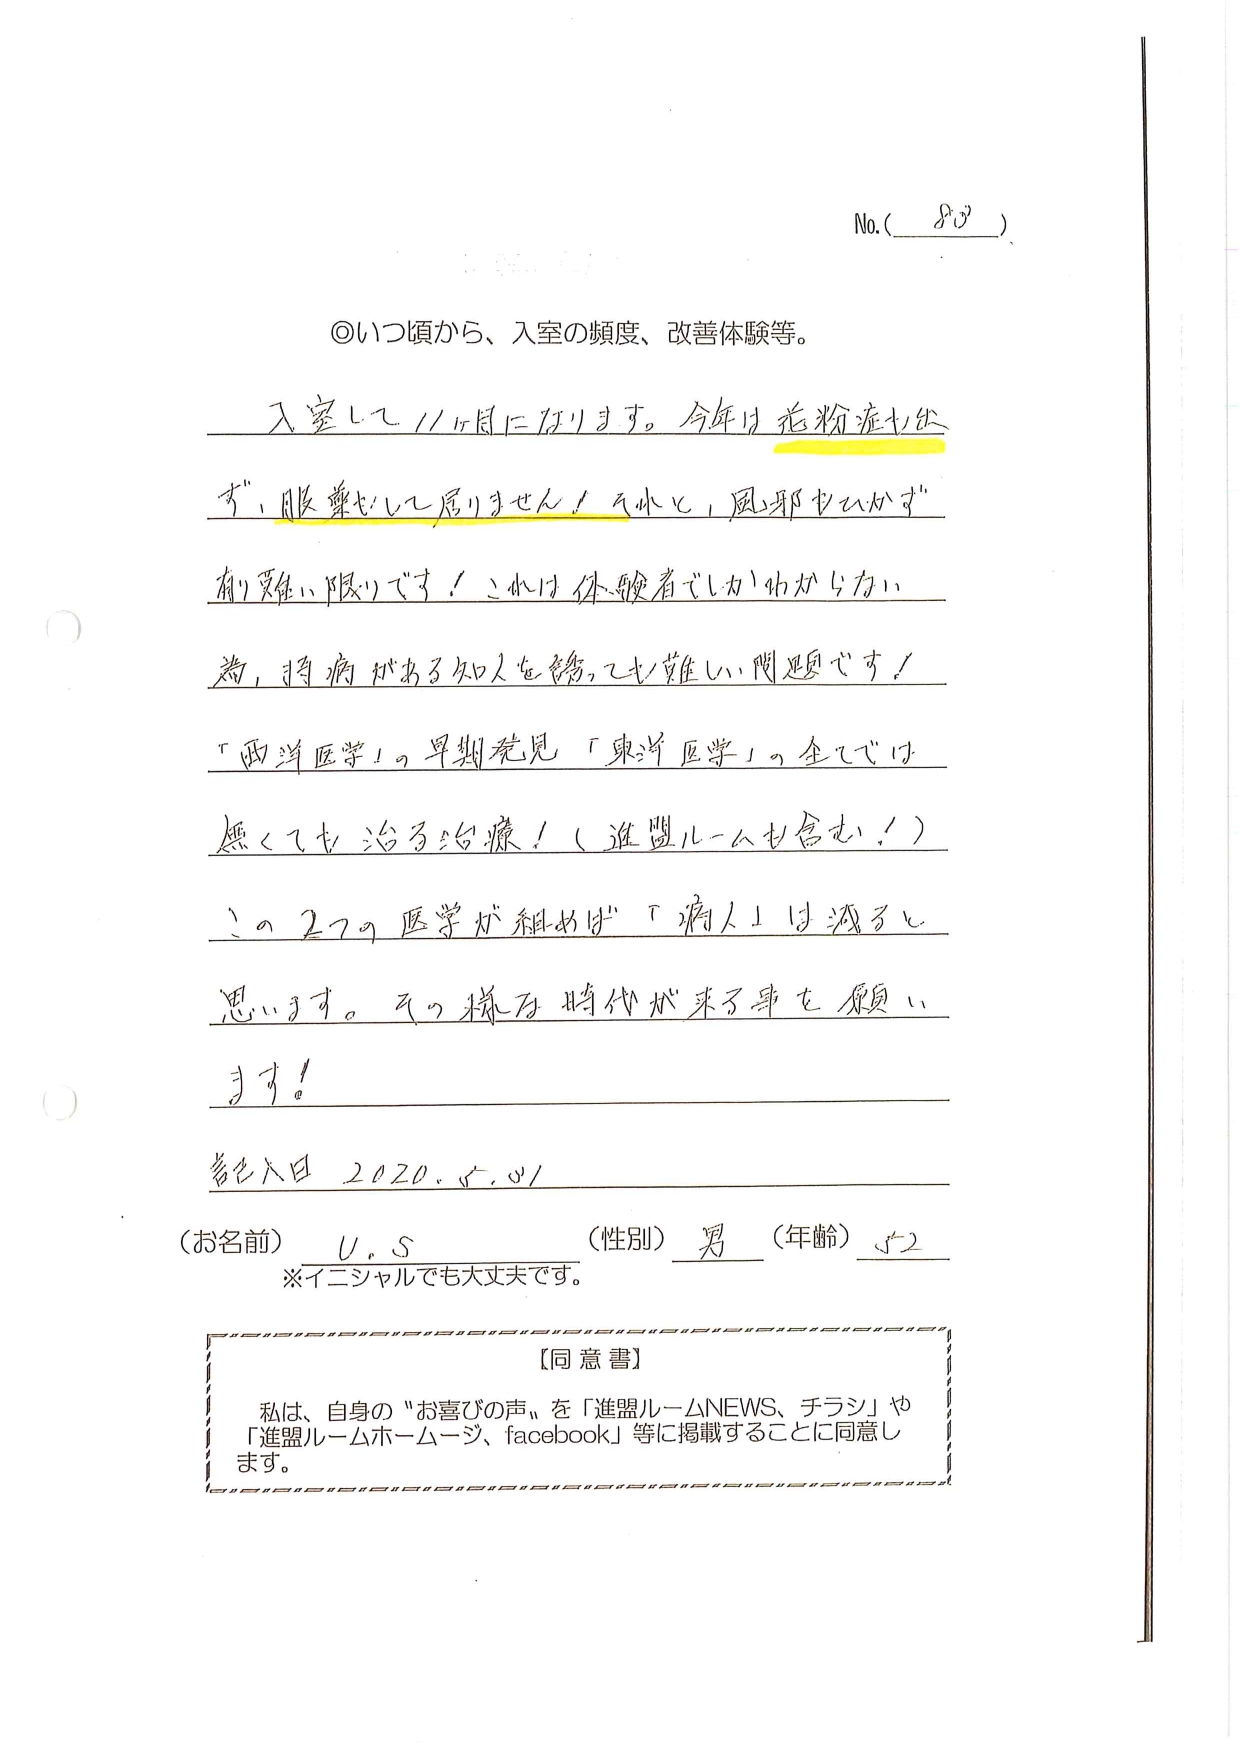 No.( 83 )
◎いつ頃から、入室の頻度、改善体験等。
入室して11ヶ月になります。今年は花粉症も出
ず、服薬もして居りません！それと、風邪もひかず
有り難い限りです！これは体験者でしかわからない
為、持病がある知人を誘っても難しい問題です！
「西洋医学」の早期発見「東洋医学」の全てでは
無くても治る治療！（進盟ルームも含む！）
この2つの医学が組めば「病人」は減ると
思います。その様な時代が来る事を願い
ます！
記入日 2020.5.31
（お名前） U.S （性別） 男 （年齢） 52
※イニシャルでも大丈夫です。
【同意書】
私は、自身の〝お喜びの声〟を「進盟ルームNEWS、チラシ」や
「進盟ルームホームージ、facebook」等に掲載することに同意し
ます。